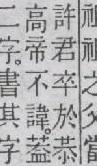 祖禰之父嘗
許君卒於恭
高帝不諱蓋
二字書其字